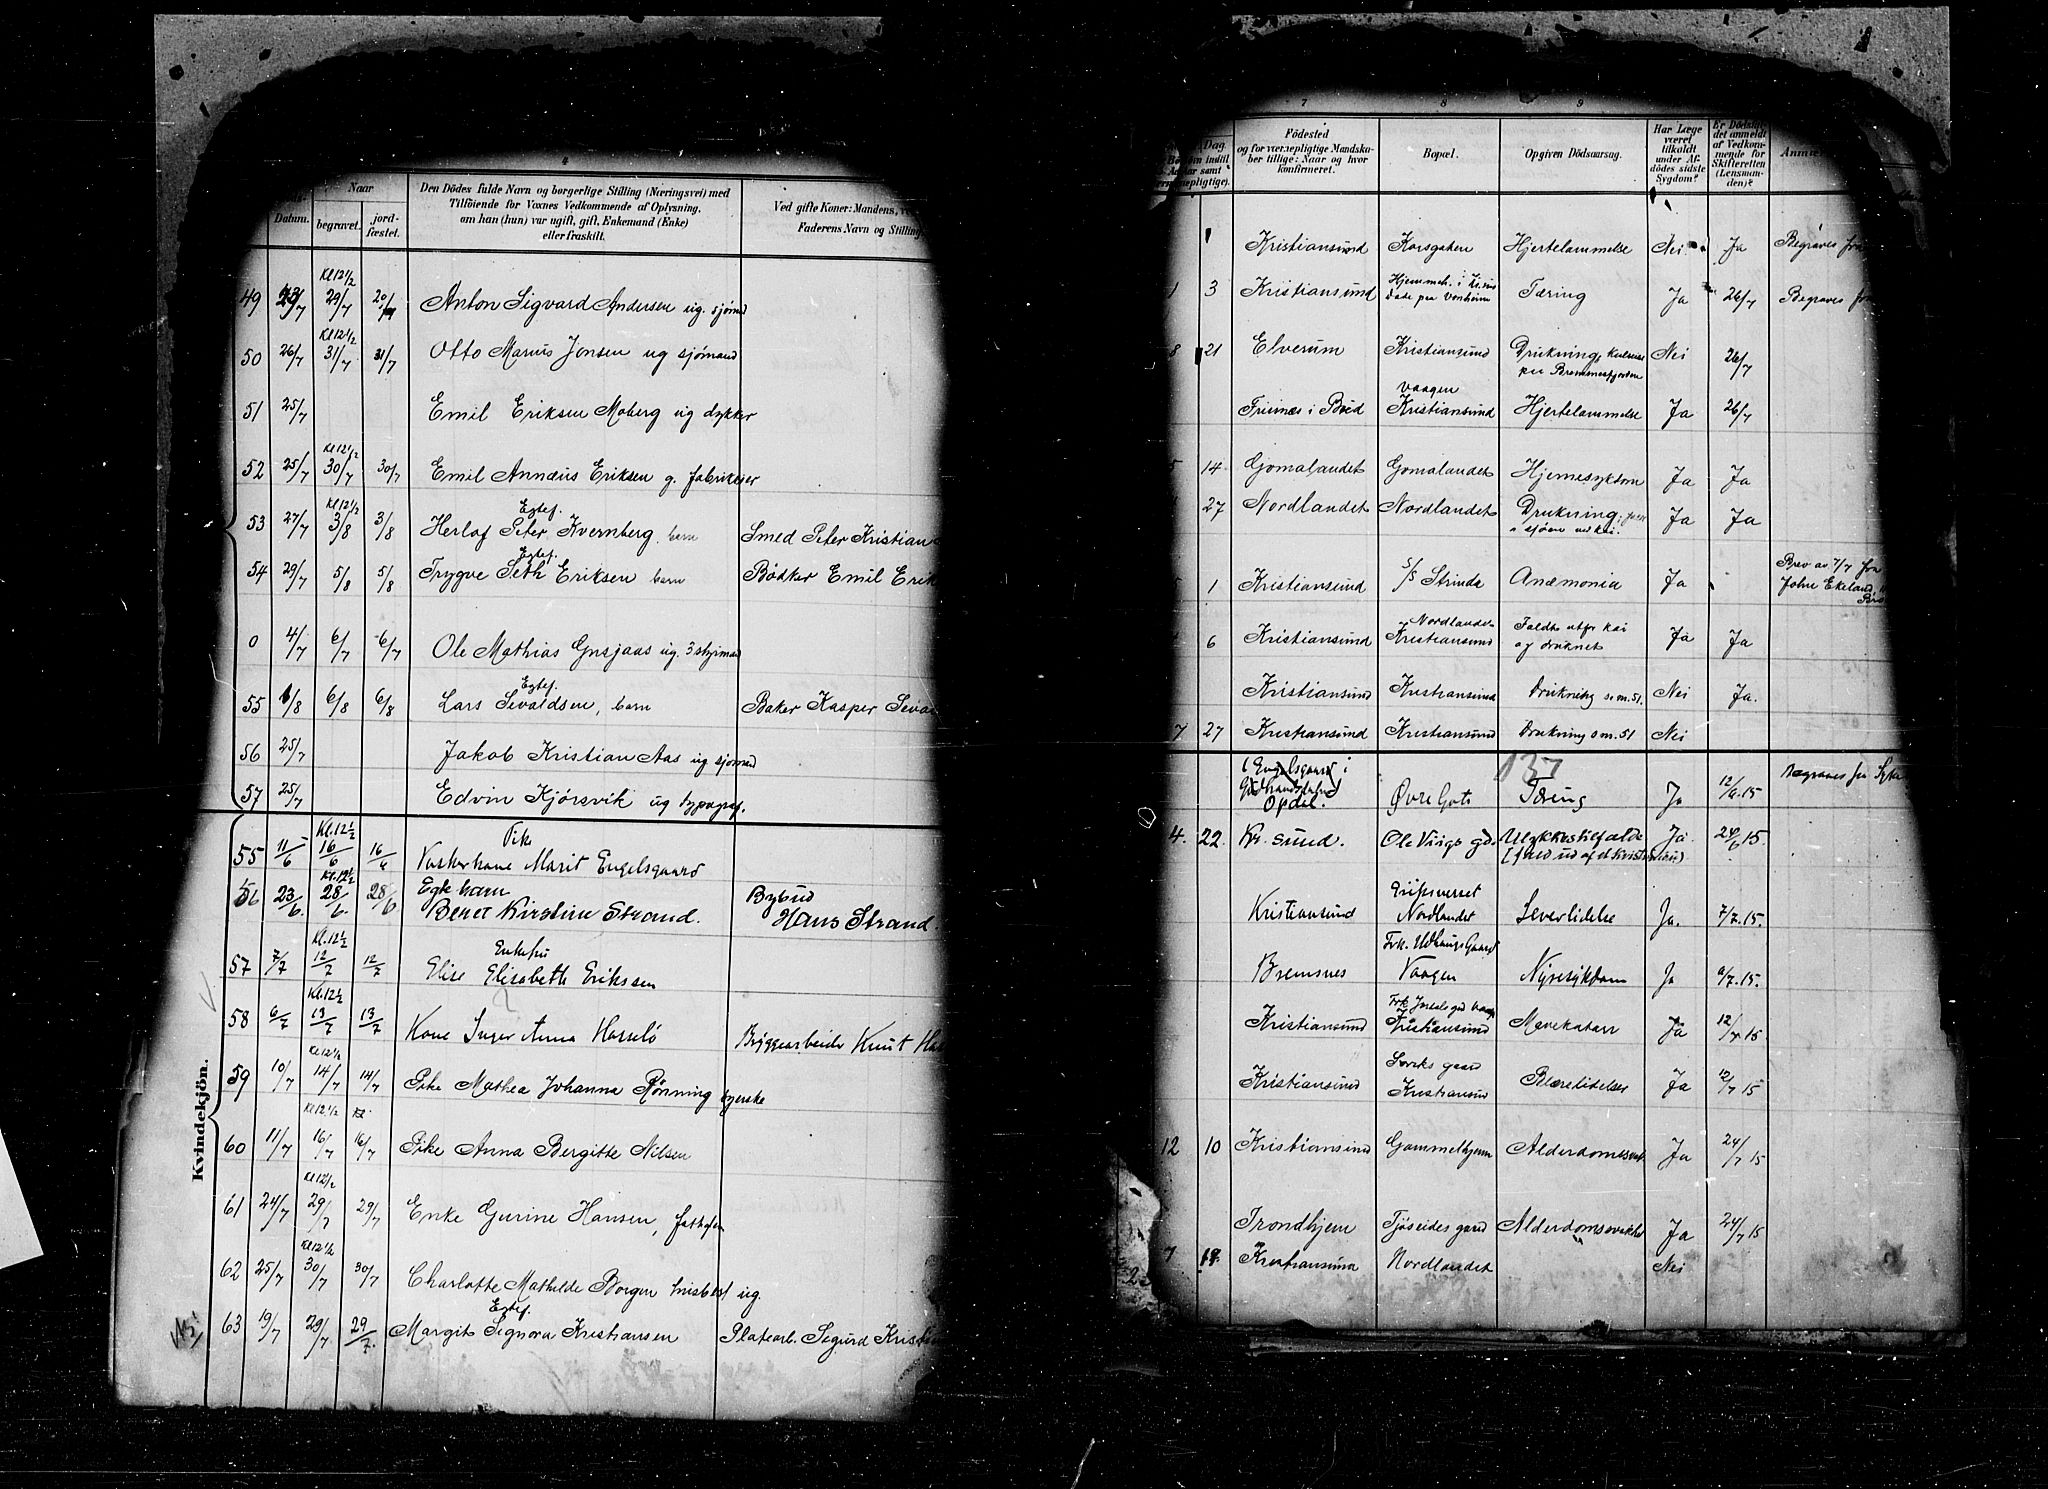 4
Naar
Datum.
begravet.
jord-
fæstet.
Den Dödes fulde Navn og borgerlige Stilling (Næringsvei) med
Tilföiende for Voxnes Vedkommende af Oplysning,
om han (hun) var ugift, gift, Enkemand (Enke)
eller fraskilt.
Ved gifte Koner: Mandens,
Faderens Navn og Stilling
49 23/7 Kl 12 1/2 29/7 Anton Sigvard Andersen ug. sjömd
50 26/7 Kl 12 1/2 31/7 31/7 Otto Marius Jonsen ug sjömand
51 25/7 Emil Eriksen Moberg ug dykker
52 25/7 Kl 12 1/2 30/7 30/7 Emil Annæus Eriksen g. fabrikeier
53 27/7 Kl 12 1/2 3/8 3/8 Egtef. Herlof Peter Kvernberg barn Smed Peter Kristian
54 29/7 5/8 5/8 Egtef. Trygve Seth Eriksen barn Bödker Emil Erik
0 4/7 6/7 6/7 Ole Mathias Gnsjaas ug. 3 styrmand
55 1/8 6/8 6/8 Egtef. Lars Sevaldsen, barn Baker Kasper Seva
56 25/7 Jakob Kristian Aas ug sjömand
57 25/7 Edvin Kjörsvik ug typograf.
Kvindekjön.
55 11/6 Kl. 12 1/2 16/6 16/6 Pike Vaskerkone Marit Engelsgaard
56 23/6. Kl. 12 1/2 28/6. 28/6 Egte barn Beret Kirstine Strand. Bybud Hans Strand.
57 7/7 Kl. 12 1/2 12/7 12/7 Enkefru Elise Elisabeth Erikssen
58 6/7 Kl. 12 1/2 13/7 13/7 Kone Inger Anna Hasselö Bryggearbeider Knut Ha
59 10/7 Kl 12 1/2 14/7 14/7 Pike Mathea Johanna Rönning syerske
60 11/7 Kl 12 1/2 16/7 16/7 Pike Anna Bergitte Nilsen
61 24/7 Kl 12 1/2 29/7 29/7 Enke Gurine Hansen,
62 25/7 Kl 12 1/2 30/7 30/7 Charlotte Mathilde Borgen husbest ug.
63 19/7 29/7 29/7. Egtef. Margit Signora Kristiansen Platearb. Sigurd Krist
7 8 9
Dag.
Födested
og for værnepligtige Mandska-
ber tillige: Naar og hvor
konfirmeret.
Bopæl.
Opgiven Dödsaarsag.
Har Læge
været
tilkaldt
under Af-
dödes sidste
Sygdom?
Er Dödsfal-
det anmeldt
af Vedkom-
mende for
Skifteretten
(Lensman-
den)?
Kristiansund Korsgaten Hjertelammelse Nei Ja Begraves fra
1 3 Kristiansund Tæring Ja 26/7 Begraves fra
8 21 Elverum Kristiansund Drukning, Nei 26/7
paa Bremnesfjorden
i Bud Vaagen Kristiansund Hjertelammelse Ja 26/7
5 14 Gomalandet Gomalandet Hjernesykdom Ja Ja
27 Nordlandet Nordlandet Drukning, Ja Ja
i sjöen ved kai.
1 Kristiansund S/S Strinda Anæmonia Ja Brev av 7/7 fra
John Ekeland,
6 Kristiansund Nordlandet Kristiansund Faldt utfor kai Ja Ja
og druknet
Kristiansund Kristiansund Drukning som 51. Nei Ja.
7 27 Kristiansund Kristiansund Drukning som 51 Nei
137
Engelsgaard i
Gudbrandsdalen
Opdal. Övre Gate Tæring Ja 12/6.15 Begraves fra Syke
4. 22. Kr. sund. Ole Viigs gd. Ulykkestilfælde Ja 24/6 15.
Kristiansund Nordlandet Leverlidelse Ja. 7/7.15.
Bremsnes Vaagen Nyresykdom Ja 9/7.15.
Kristiansund Kristiansund Mavekatarr Ja 12/7.15.
Kristiansund gaard Kristiansund Blærelidelse Ja 12/7 15
12 10 Kristiansund Gammelhjem Alderdomssvak Ja 24/7 15
Trondhjem gaard Alderdomssvakhet Ja 24/7 15
7 19. Kristiansund Nordlandet Nei